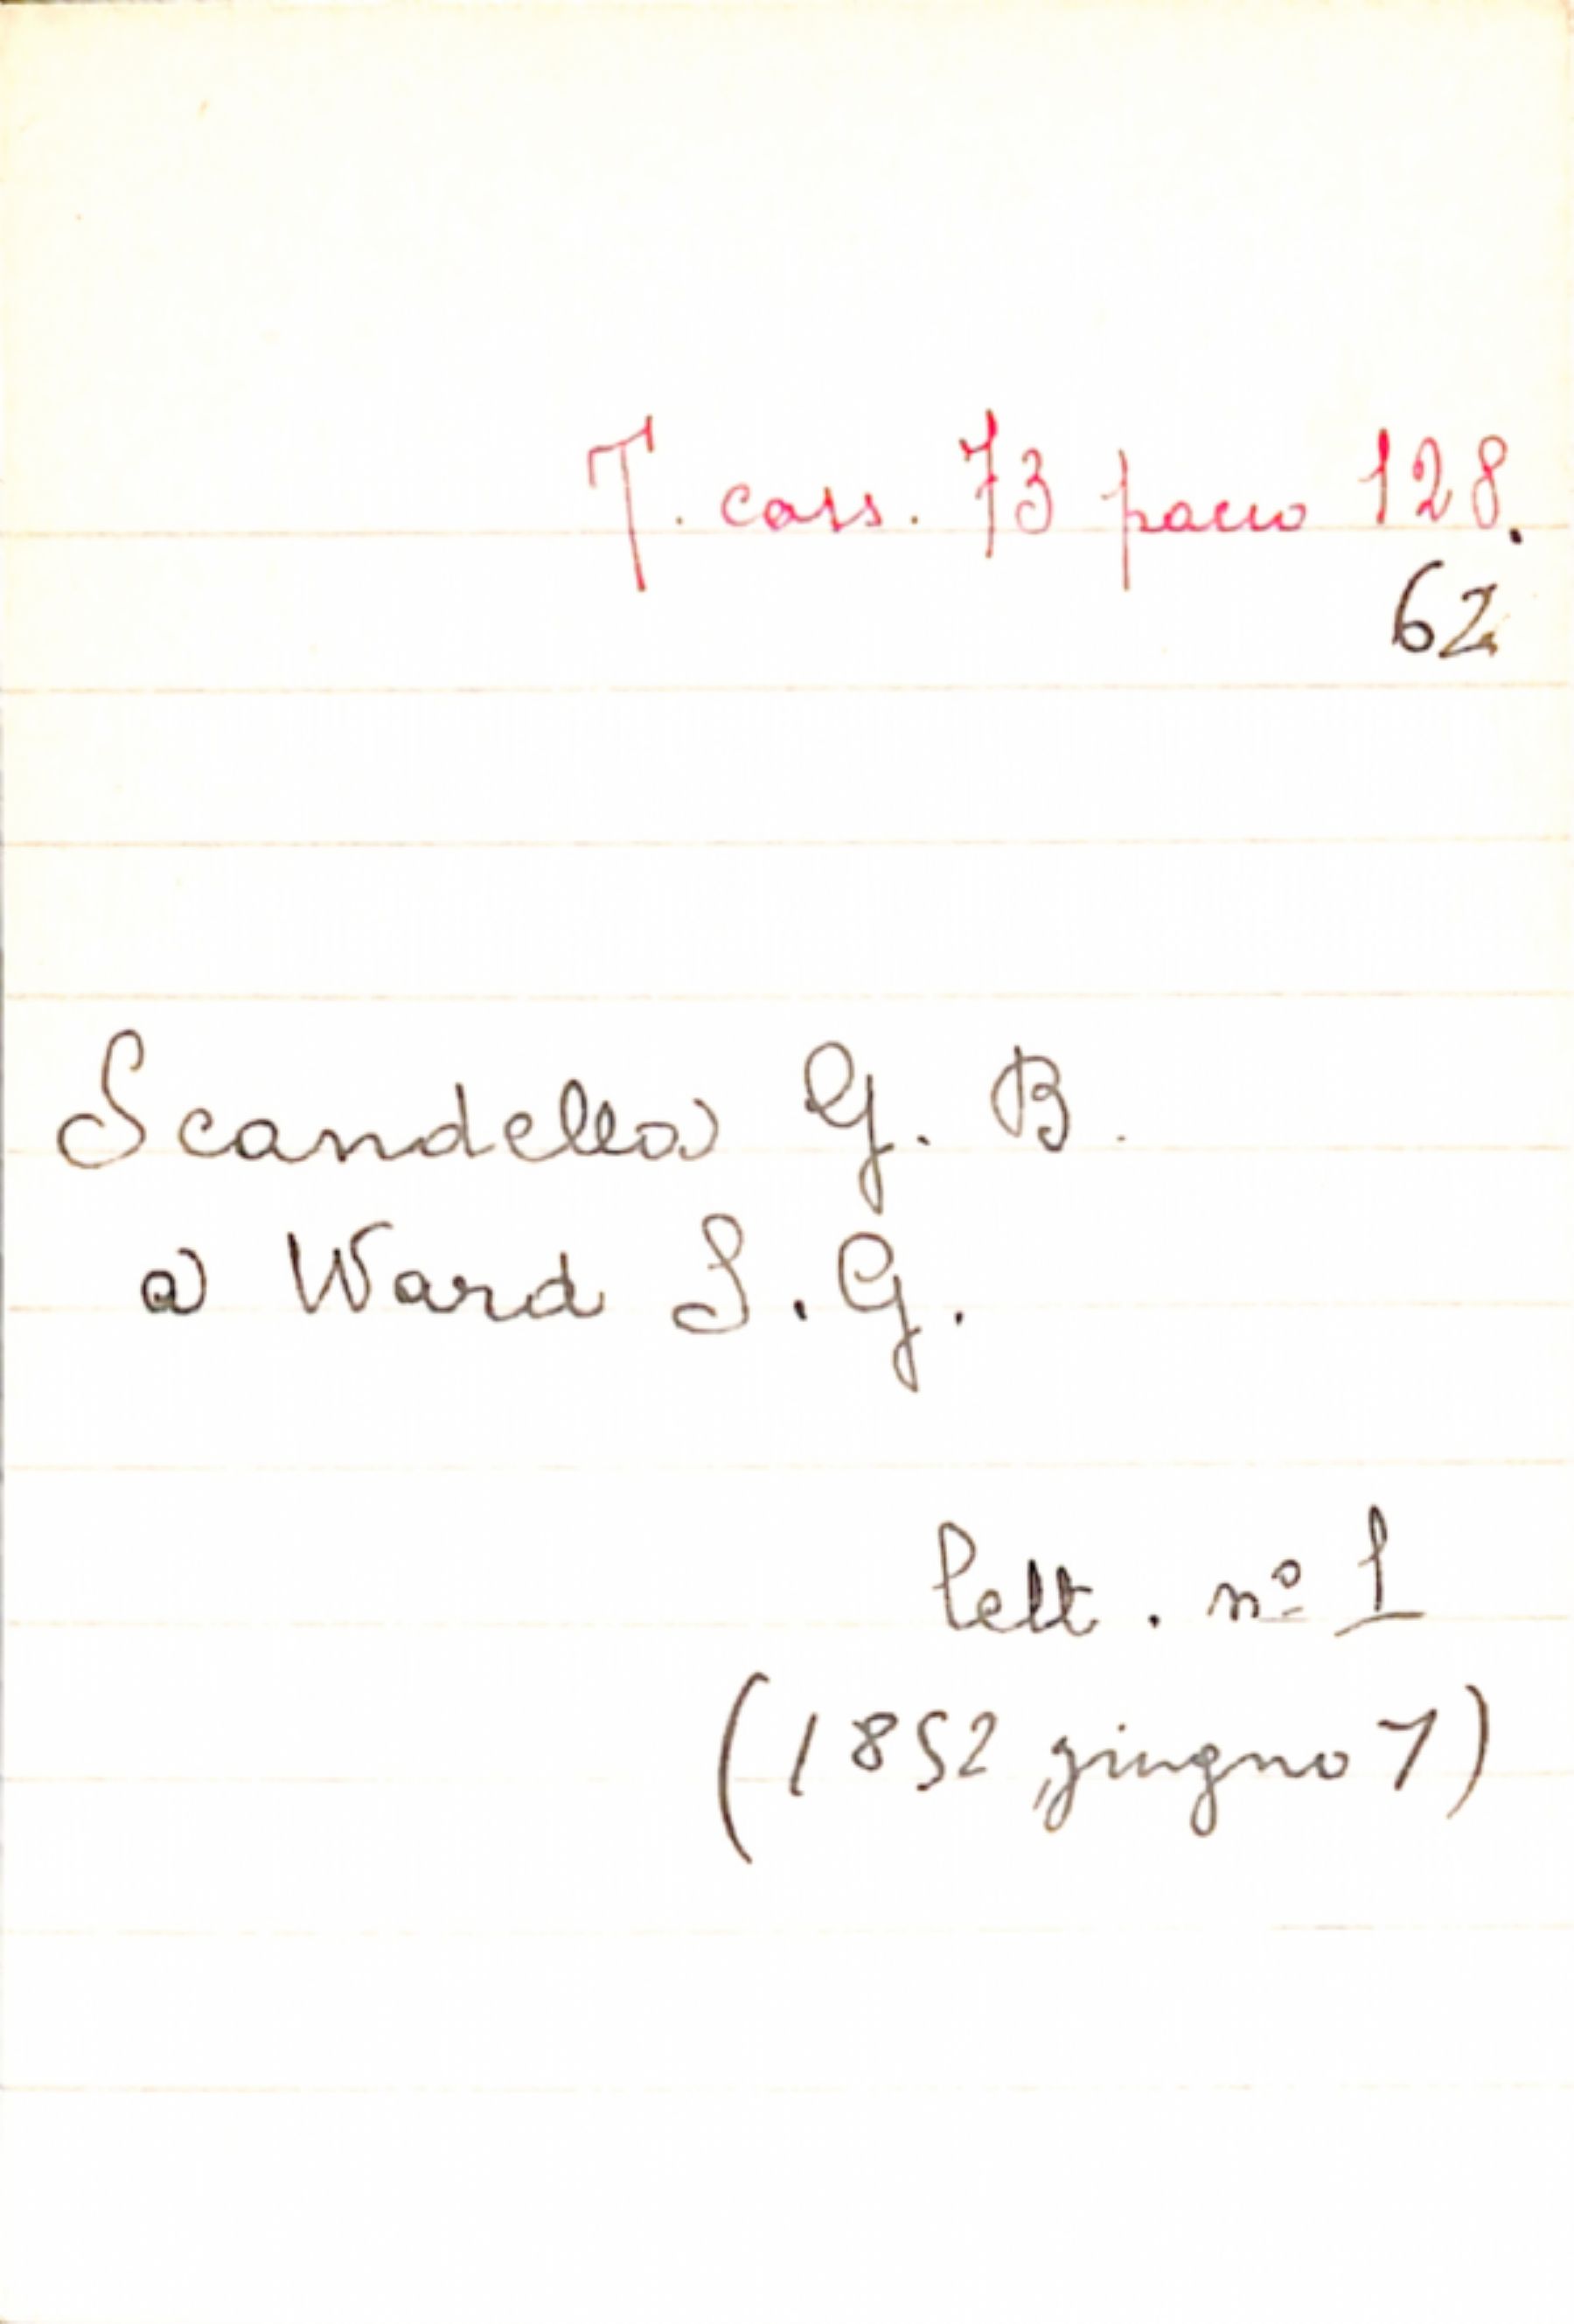 T. cass. 73 pacco 128.
62
Scandella G. B.
a Ward S. G.
lett. nº 1
(1852, giugno 7)